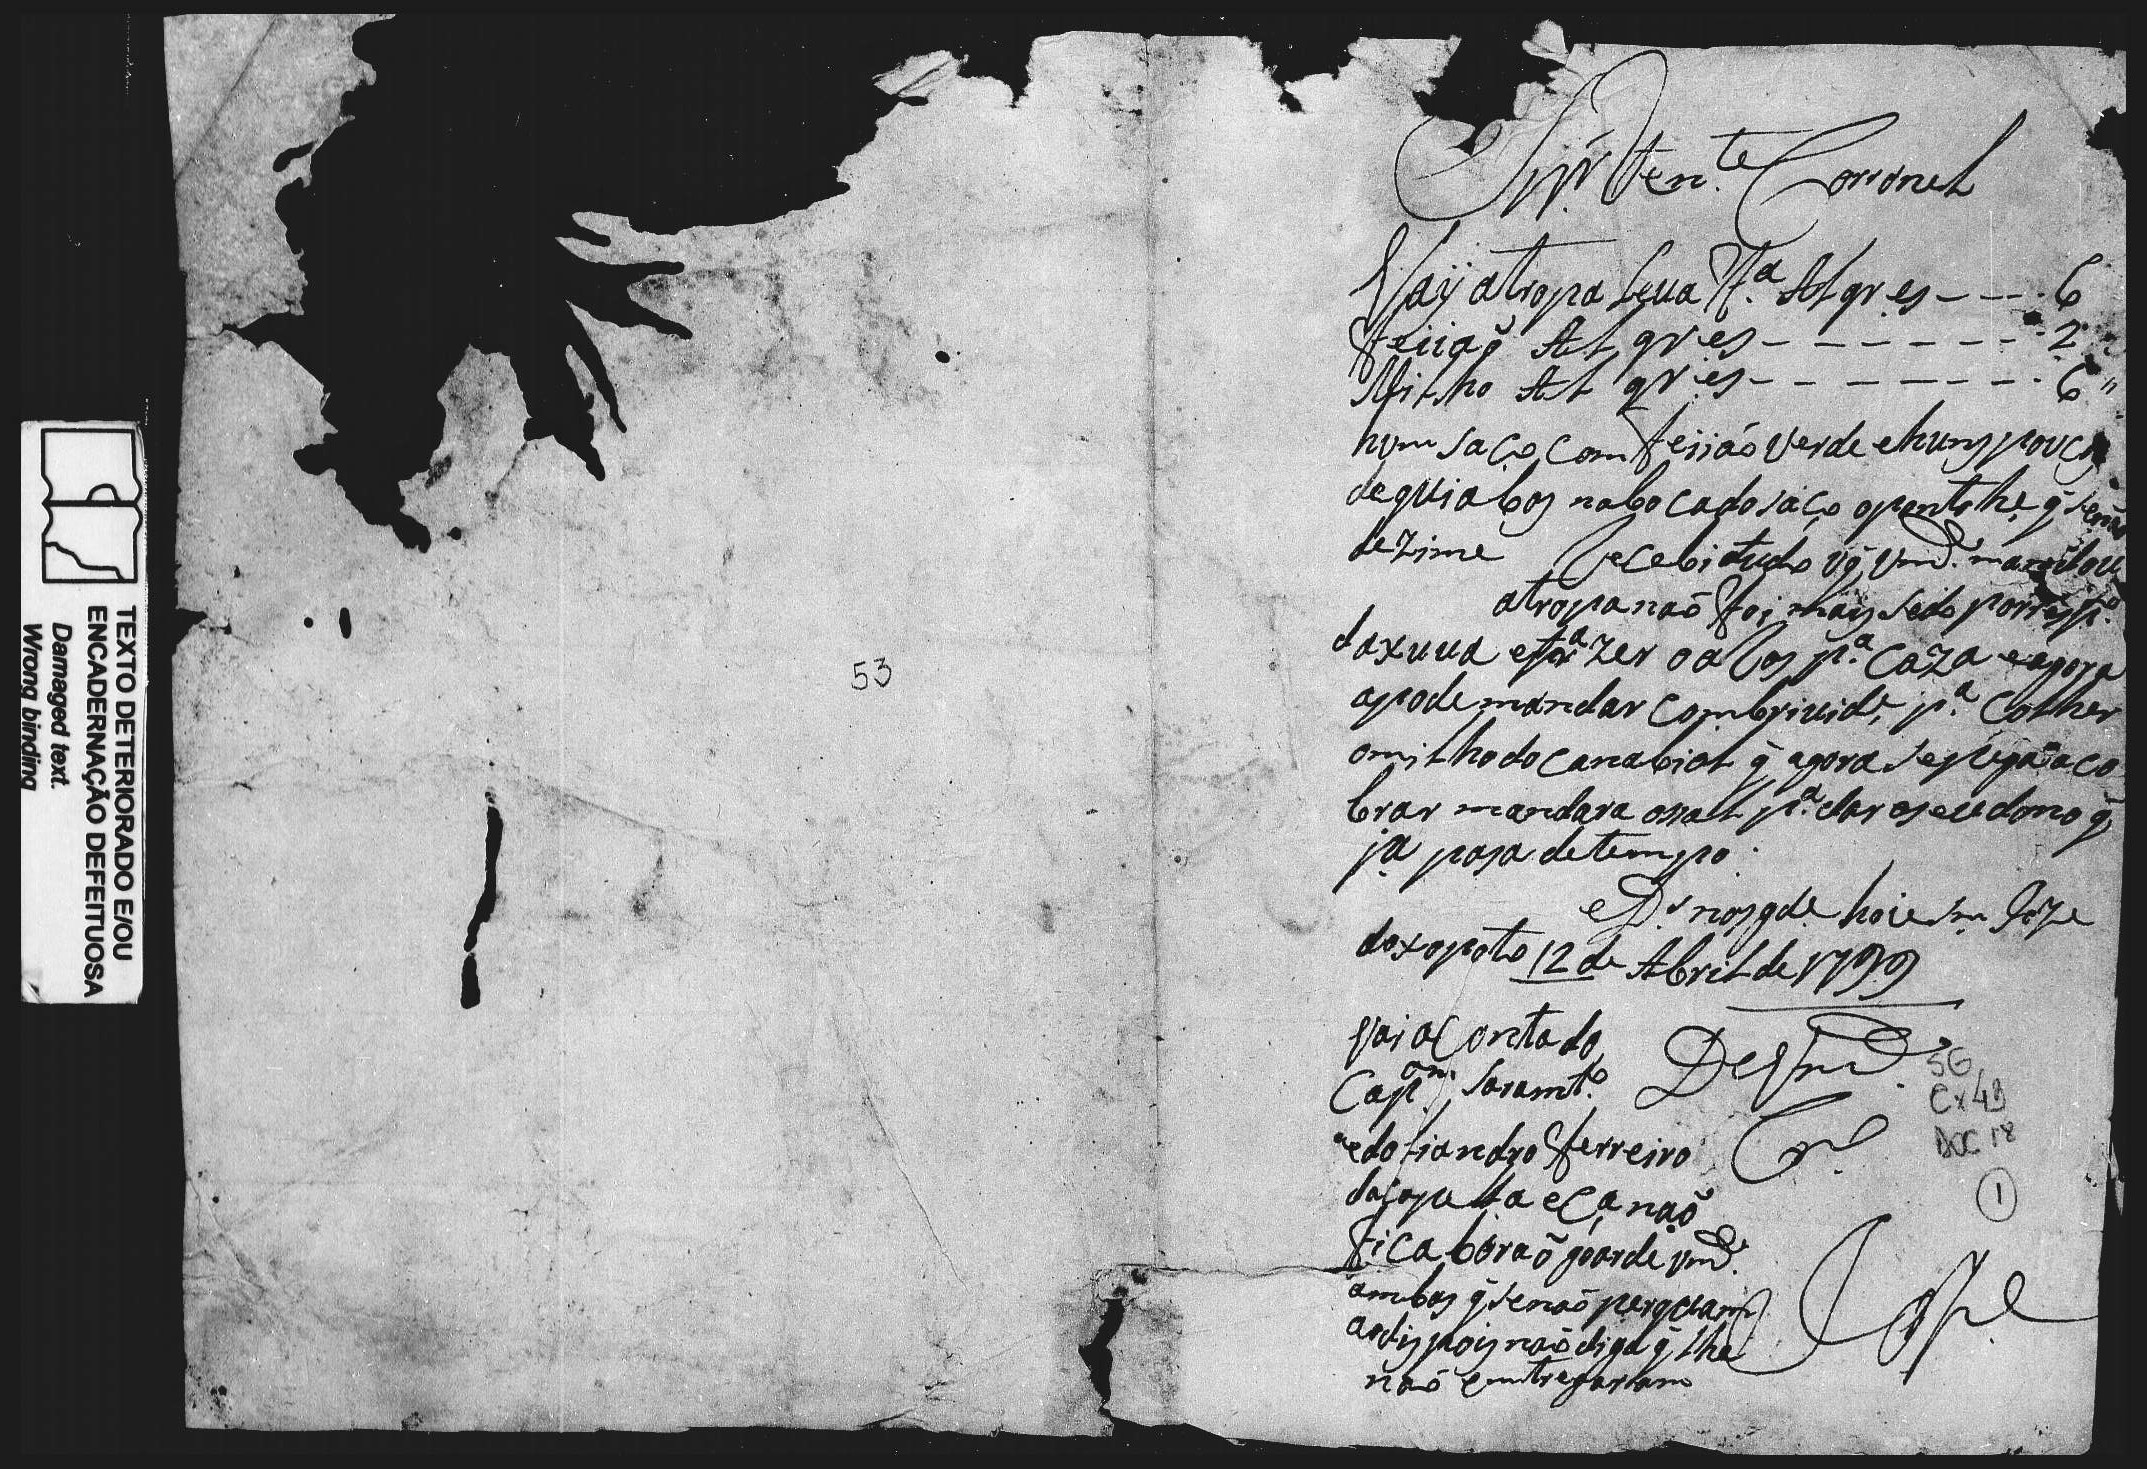 TEXTO DETERIORADO E/OU
ENCADERNAÇÃO DEFEITUOSA
Damaged text.
Wrong binding
53
Snr. Ten.te Coronel
Vaÿ atropa Leva F.a Alqr.es - - - - 6
Feijaõ Alqr.es - - - - - - - 2
Milho Alqr.es - - - - - - - - 6 "
hum saco com feijaõ Verde ehuns poucos
dequiabos nabocadosaco oponto he q̃ senaõ
dezime Recebi tudo q̃ Vm.ce mandou
atropa naõ foi mays sedo por
daxuva efazer oalos p.a Caza eagora
apode mandar Combrivid.e p.a Colher
omilhodocanabial q̃ agora sepega aco
brar mandara osal p.a dar aseudono q̃
ja pasa detempo.
eD.s nosg.de hoie Sm. Joze
doxopoto 12 de Abril de 1799
Vai aContado
Cap.am Saram.to
edo Liandro Ferreiro
dacapella eCanaõ
fica boraõ goarde Vm.ce
ambos q̃ senaõ percam
aodispois naõ diga q̃ lhe
naõ emtregaram
De Vm.ce
SG
Cx 49
DOC 18
1